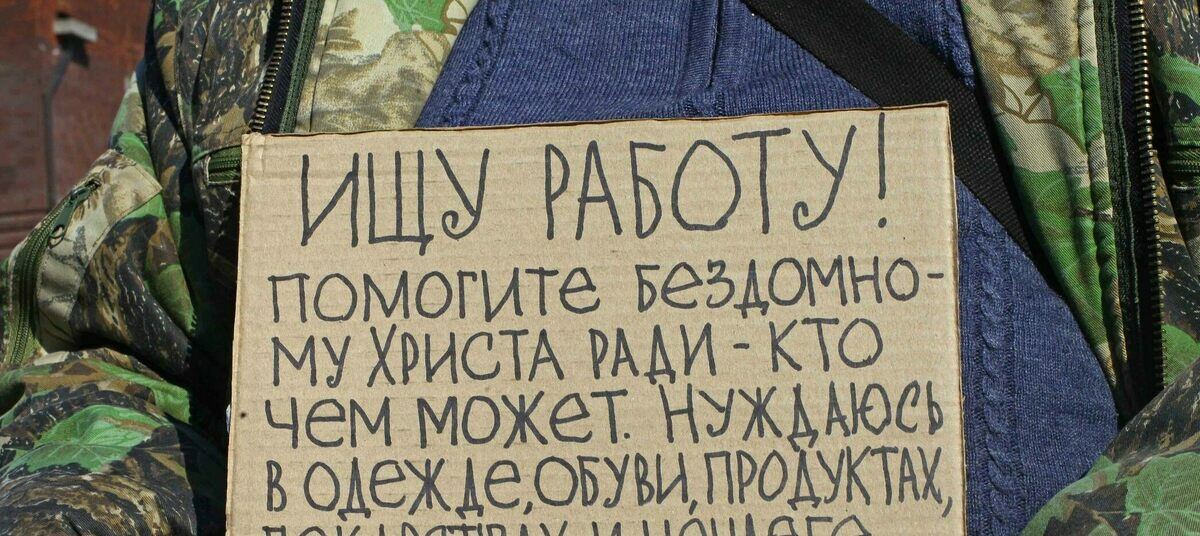 ИЩУ РАБОТУ!
ПОМОГИТЕ БЕЗДОМНО-
МУ ХРИСТА РАДИ - КТО
ЧЕМ МОЖЕТ. НУЖДАЮСЬ
В ОДЕЖДЕ, ОБУВИ, ПРОДУКТАХ,
ЛЕКАРСТВАХ И НОЧЛЕГЕ